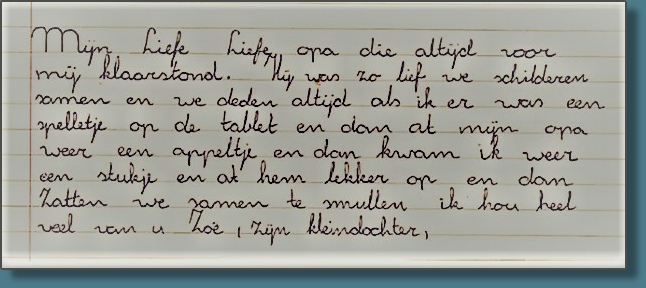 Mijn liefe liefe, opa die altijd voor
mij klaarstond. Hij was zo lief we schilderen
samen en we deden altijd als ik er was een
spelletje op de tablet en dan at mijn opa
weer een appeltje en dan kwam ik weer
een stukje en at hem lekker op en dan
Zatten we samen te smullen ik hou heel
veel van u Zoë, zijn kleindochter,